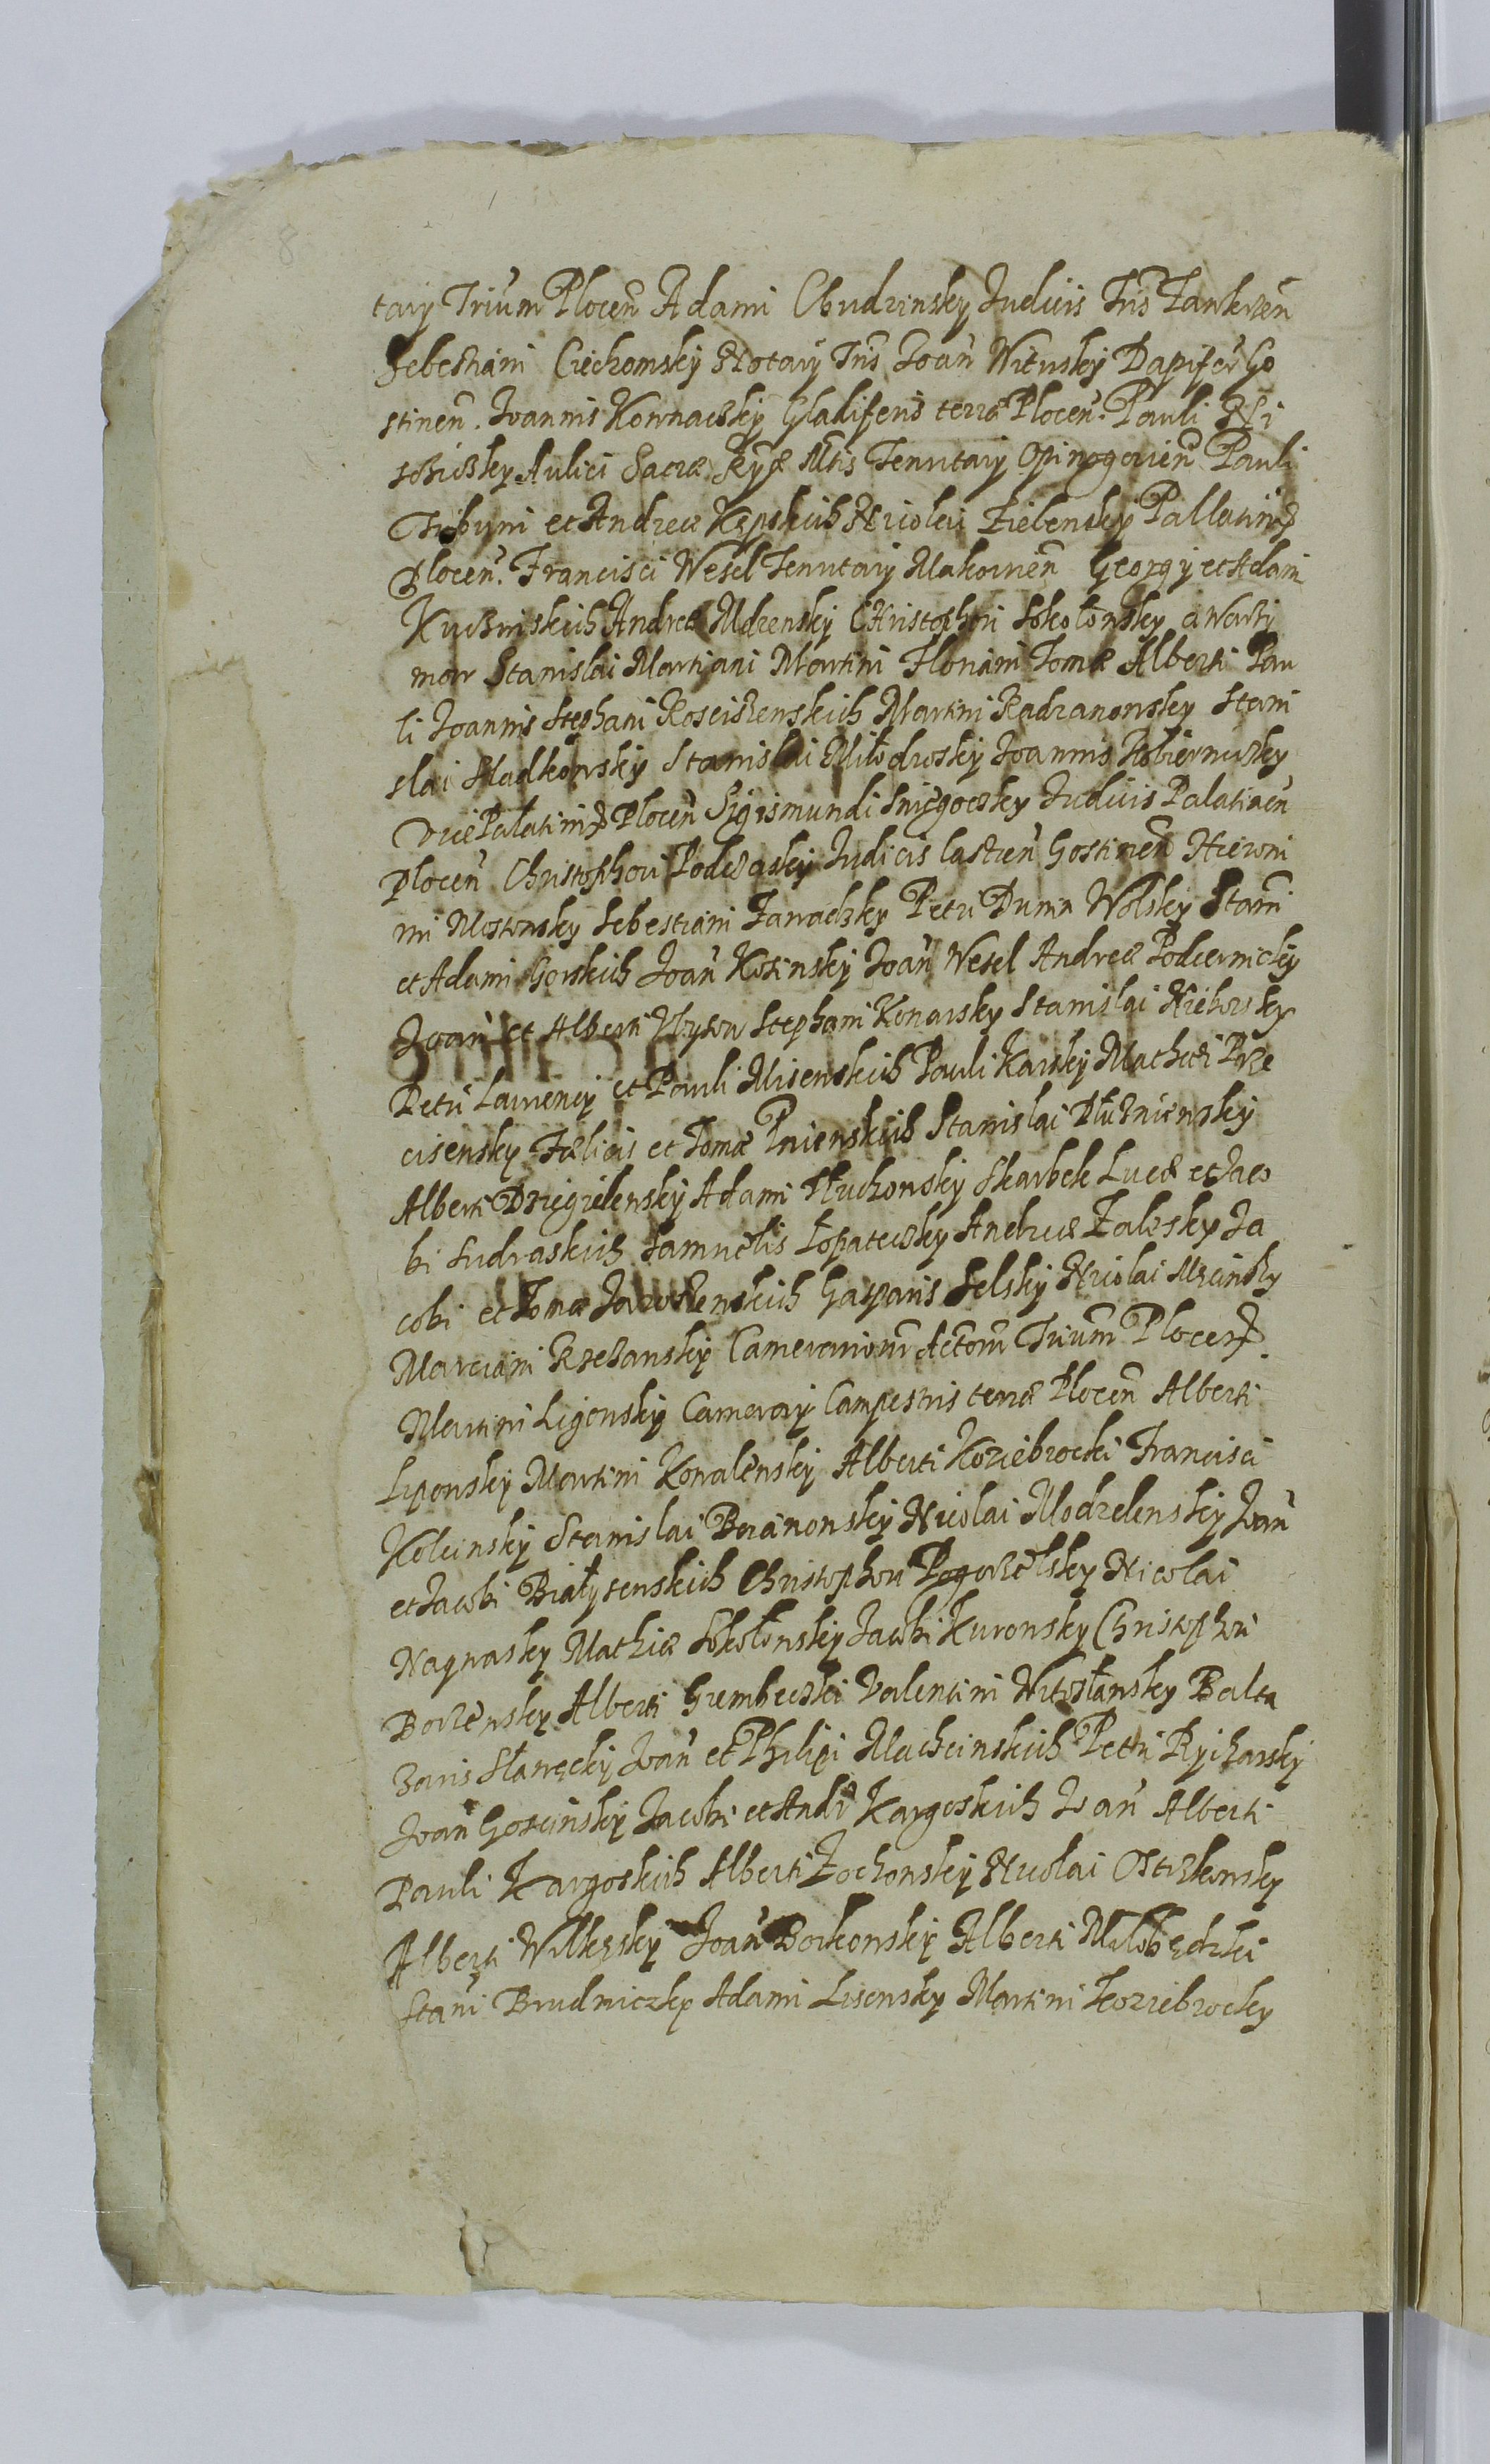 8
tarÿ Trium Plocen̄ Adami Obudzinsky Judicis Tris Zawkrzen̄
Sebestiani Ciechomsky Notarÿ Tris Joan̄ Witusky Dapiferi Go
stinen̄. Joannis Kownaczky Gladiferis terræ Plocen̄. Pauli Ni
Aulici Sacræ Rg̃æ Mtis Tenutarÿ Opinogorien̄ Pauli
Tribuni et Andreæ Kępskich Nicolai Zielensky Pallatini
Plocen̄. Francisci Wesel Tenutarÿ Makovien̄ Georgÿ et Adami
Kuczinskich Andreæ Mdzensky Christophori Sokołowsky a Warzÿ
mow Stanislai Martiani Martini Floriani Tomæ Alberti Pau
li Joannis Stephani Kosciszewskich Martini Radzanowsky Stani
slai Sladkowsky Stanislai Miłodrosky Joannis Kobierniczky
Vice Palatini Plocen̄ Sigismundi Sniegoczky Judicis Palatinen̄
Plocen̄ Christophori Podczasky Judicis Castren̄ Gostinen̄ Hieroni
mi Mostowsky Sebestiani Zawadzky Petri Dunin Wolsky Stani
et Adami Gorskich Joan̄ Kosinsky Joan̄ Wesel Andreæ Podczernicky
Joan̄ et Alberti Stephani Konarsky Stanislai Niehorsky
Petri Laurencÿ et Pauli Misewskich Pauli Karsky Mathæi Prze
cisewsky Fælicis et Tomæ Pniewskich Stanislai Dłużniewsky
Alberti Dziegielewsky Adami Głuchowsky Skarbek Lucæ et Jaco
bi Sudraskich Samuelis Łopateczky Andreæ Zalesky Ja
cobi et Tomæ Jaroszewskich Gasparis Selsky Nicolai
Marciani Krzczansky Camerariorum Actorum Trium Plocen
Martini Ligowsky Camerarÿ Campestris terræ Plocen̄ Alberti
Lipowsky Martini Kowalewsky Alberti Koziebrocki Francisci
Kolcinsky Stanislai Boranowsky Nicolai Modzelewsky Joan̄
et Jacobi Białyszewskich Christophori Pogorzelsky Nicolai
Nagnasky Mathiæ Sokołowsky Jacobi Kurowsky Christophori
Borzewsky Alberti Grembeczki Valentini Witosławsky Balta
zaris Sławęcky Joan̄ et Philipi Machcinskich Petri Rycharsky
Joan̄ Goscinsky Jacobi et Andr̄ Kargoskich Joan̄ Alberti
Pauli Kargoskich Alberti Zochowsky Nicolai Ostrzkowsky
Alberti Wilkęsky Joan̄ Borkowsky Alberti Miłobędzki
Stani Brudniczky Adami Lisewsky Martini Koziebrocky